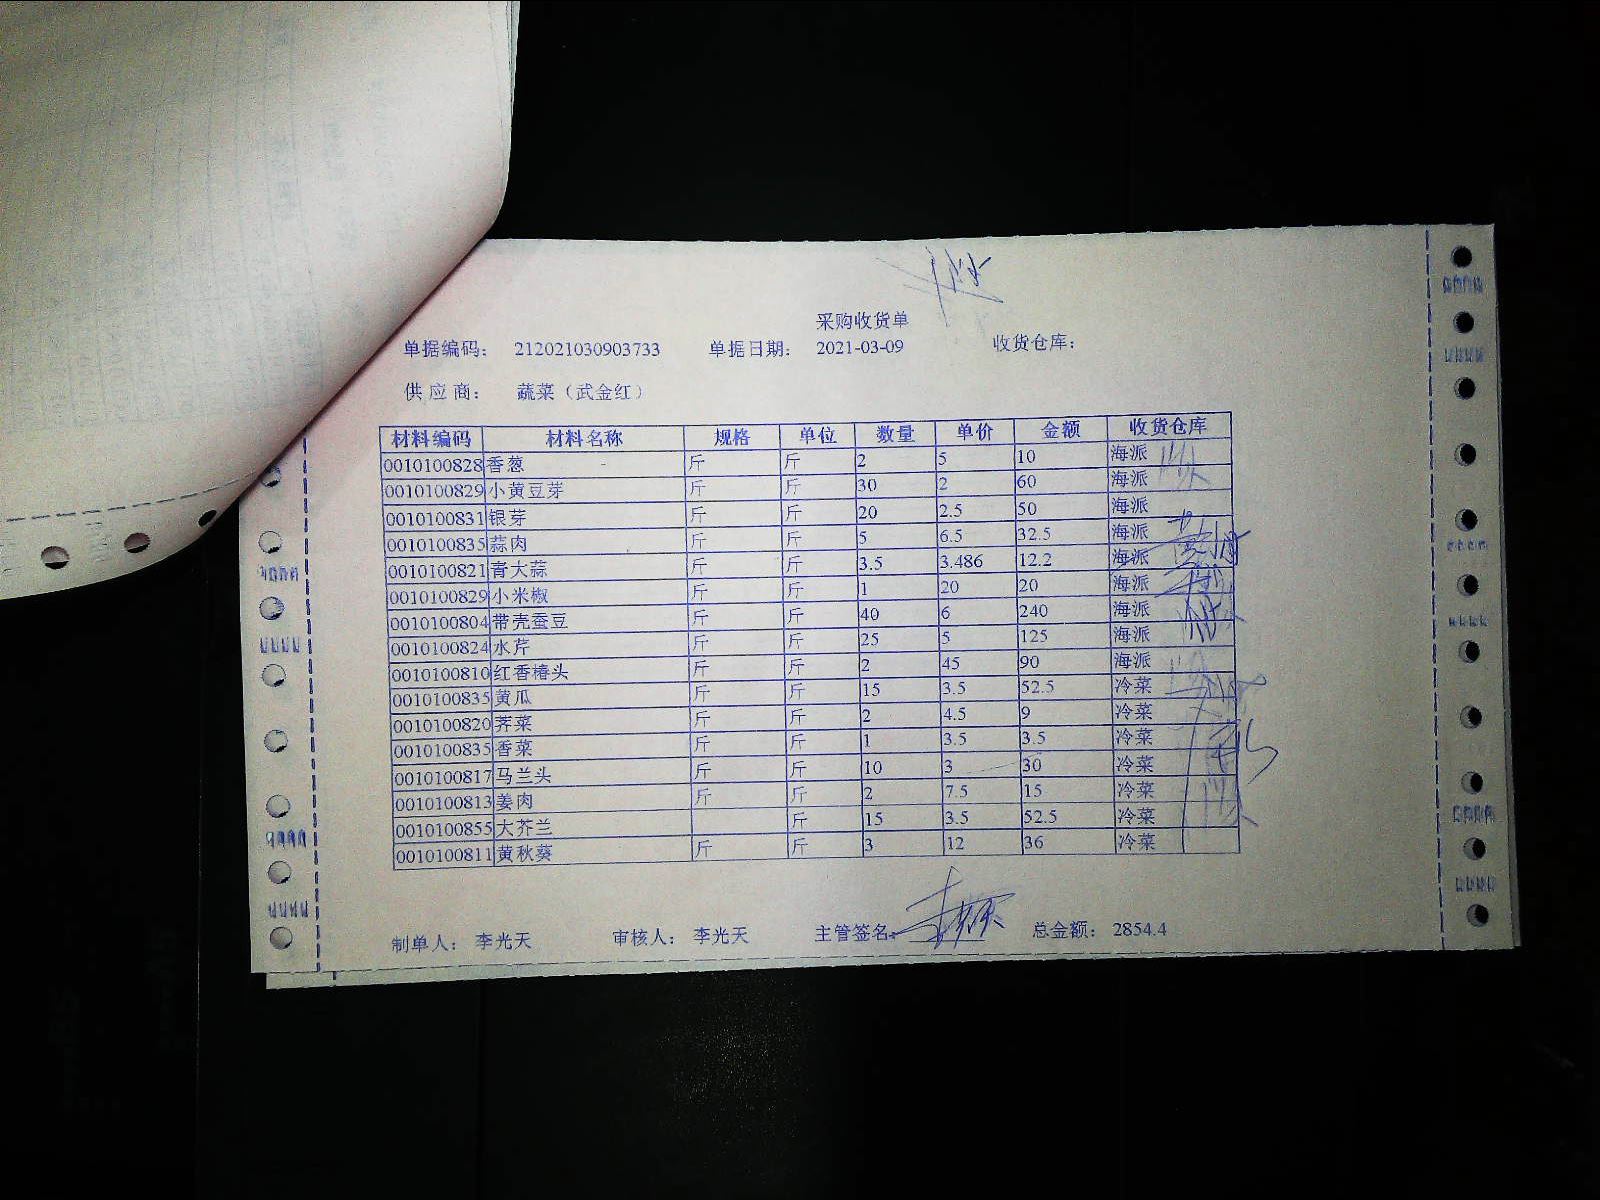 采购收货单
单据编码： 212021030903733 单据日期： 2021-03-09 收货仓库：
供 应 商： 蔬菜（武金红）
材料编码 材料名称 规格 单位 数量 单价 金额 收货仓库
0010100828 香葱 斤 斤 2 5 10 海派
0010100829 小黄豆芽 斤 斤 30 2 60 海派
0010100831 银芽 斤 斤 20 2.5 50 海派
0010100835 蒜肉 斤 斤 5 6.5 32.5 海派
0010100821 青大蒜 斤 斤 3.5 3.486 12.2 海派
0010100829 小米椒 斤 斤 1 20 20 海派
0010100804 带壳蚕豆 斤 斤 40 6 240 海派
0010100824 水芹 斤 斤 25 5 125 海派
0010100810 红香椿头 斤 斤 2 45 90 海派
0010100835 黄瓜 斤 斤 15 3.5 52.5 冷菜
0010100820 荠菜 斤 斤 2 4.5 9 冷菜
0010100835 香菜 斤 斤 1 3.5 3.5 冷菜
0010100817 马兰头 斤 斤 10 3 30 冷菜
0010100813 姜肉 斤 斤 2 7.5 15 冷菜
0010100855 大芥兰 斤 15 3.5 52.5 冷菜
0010100811 黄秋葵 斤 斤 3 12 36 冷菜
制单人： 李光天 审核人： 李光天 主管签名： 总金额： 2854.4